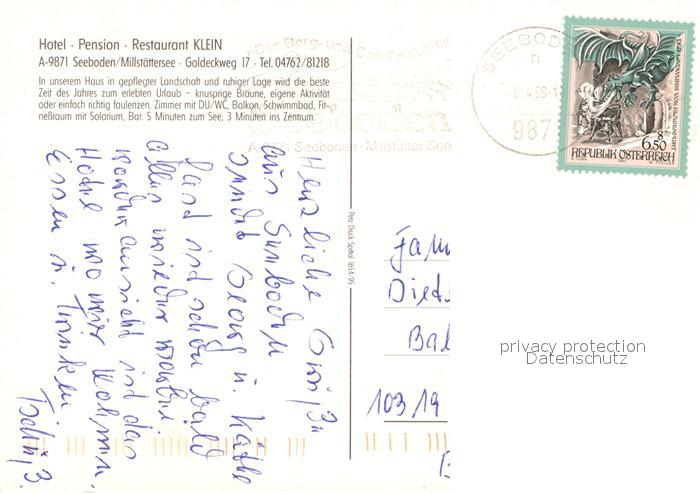 Hotel · Pension · Restaurant KLEIN
A-9871 Seeboden/Millstättersee · Goldeckweg 17 · Tel. 04762/81218
In unserem Haus in gepflegter Landschaft und ruhiger Lage wird die beste
Zeit des Jahres zum erlebten Urlaub – knusprige Bräune, eigene Aktivität
oder einfach richtig faulenzen. Zimmer mit DU/WC, Balkon, Schwimmbad, Fit-
neßraum mit Solarium, Bar. 5 Minuten zum See, 3 Minuten ins Zentrum.
Seeboden
A-9871 Seeboden · Millstätter See
SEEBOD
h
987
S
6.50
REPUBLIK ÖSTERREICH
Herzliche Grüße
aus Seeboden
sendet Georg u. Käthe
sind schon bald
alles wieder
ist das
Hotel wo wir wohnen.
Essen u. Trinken
Tschüß.
Petz Druck Spittal 1654-95
Fam
Died
Bal
10319
B
privacy protection
Datenschutz